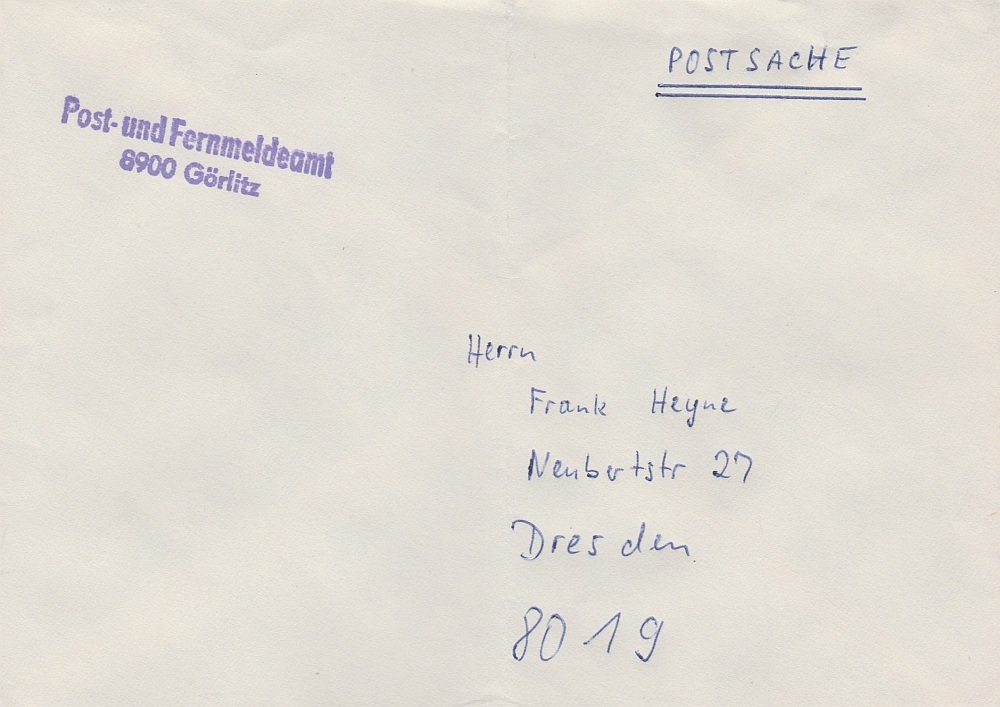 POSTSACHE
Post- und Fernmeldeamt
8900 Görlitz
Herrn
Frank Heyne
Neubertstr 27
Dresden
8019